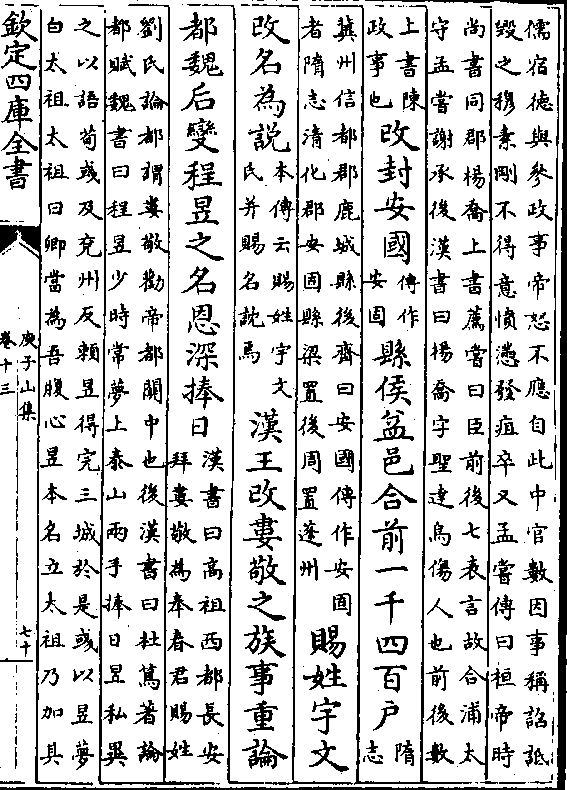 儒宿德與參政事帝怒不應自此中官數因事稱詔詆
毀之穆素剛不得意憤懣發疽卒又孟嘗傳曰桓帝時
尚書同郡楊喬上書薦嘗曰臣前後七表言故合浦太
守孟嘗謝承後漢書曰楊喬字聖達烏傷人也前後數
上書陳政事也改封安國傳作安固縣侯益邑合前一千四百户隋志
冀州信都郡鹿城縣後齊曰安國傳作安固者隋志清化郡安固縣梁置後周置蓬州賜姓宇文
改名為說本傳云賜姓宇文氏并賜名說焉漢王改婁敬之族事重論
都魏后變程昱之名恩深捧日漢書曰高祖西都長安拜婁敬為奉春君賜姓
劉氏論都謂婁敬勸帝都關中也後漢書曰杜篤著論
都賦魏書曰程昱少時常夢上泰山兩手捧日昱私異
之以語荀彧及兖州反賴昱得完三城於是彧以昱夢
白太祖太祖曰卿當為吾腹心昱本名立太祖乃加其
欽定四庫全書
庾子山集
卷十三
七十